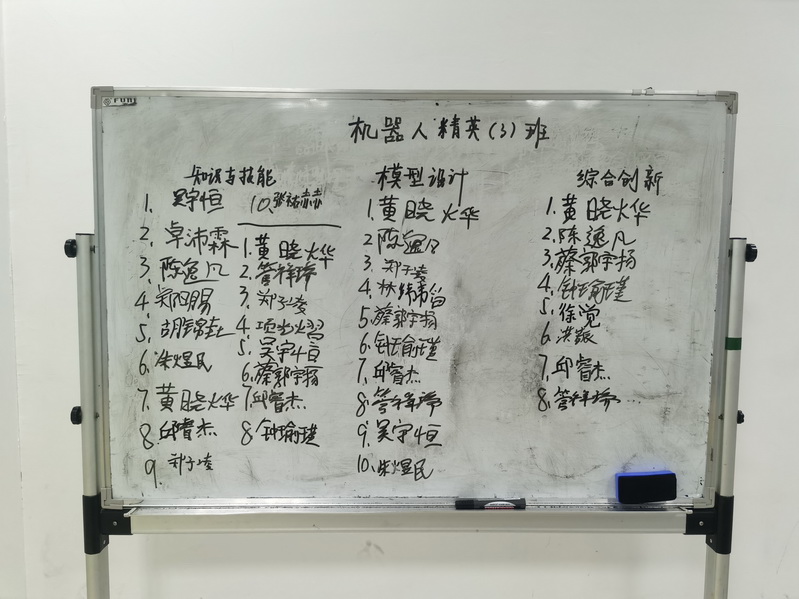 FUNI
机器人精英(3)班
知识与技能
1. 吴宇恒
2. 卓沛霖
3. 陈逸凡
4.
5. 胡锦
6. 朱煜民
7. 黄晓烨
8 邱睿杰
9. 郑子凌
10. 张祐赫
1. 黄晓烨
2. 管梓
3. 郑子凌
4. 项
5. 吴宇恒
6. 蔡郭宇扬
7. 邱睿杰
8 钟瑜瑾
模型设计
1. 黄晓烨
2 陈逸凡
3. 郑子凌
4. 林
5 蔡郭宇扬
6. 钟瑜瑾
7. 邱睿杰
8. 管梓
9. 吴宇恒
10. 朱煜民
综合创新
1. 黄晓烨
2. 陈逸凡
3. 蔡郭宇扬
4. 钟瑜瑾
5. 徐
6. 洪
7. 邱睿杰
8. 管梓